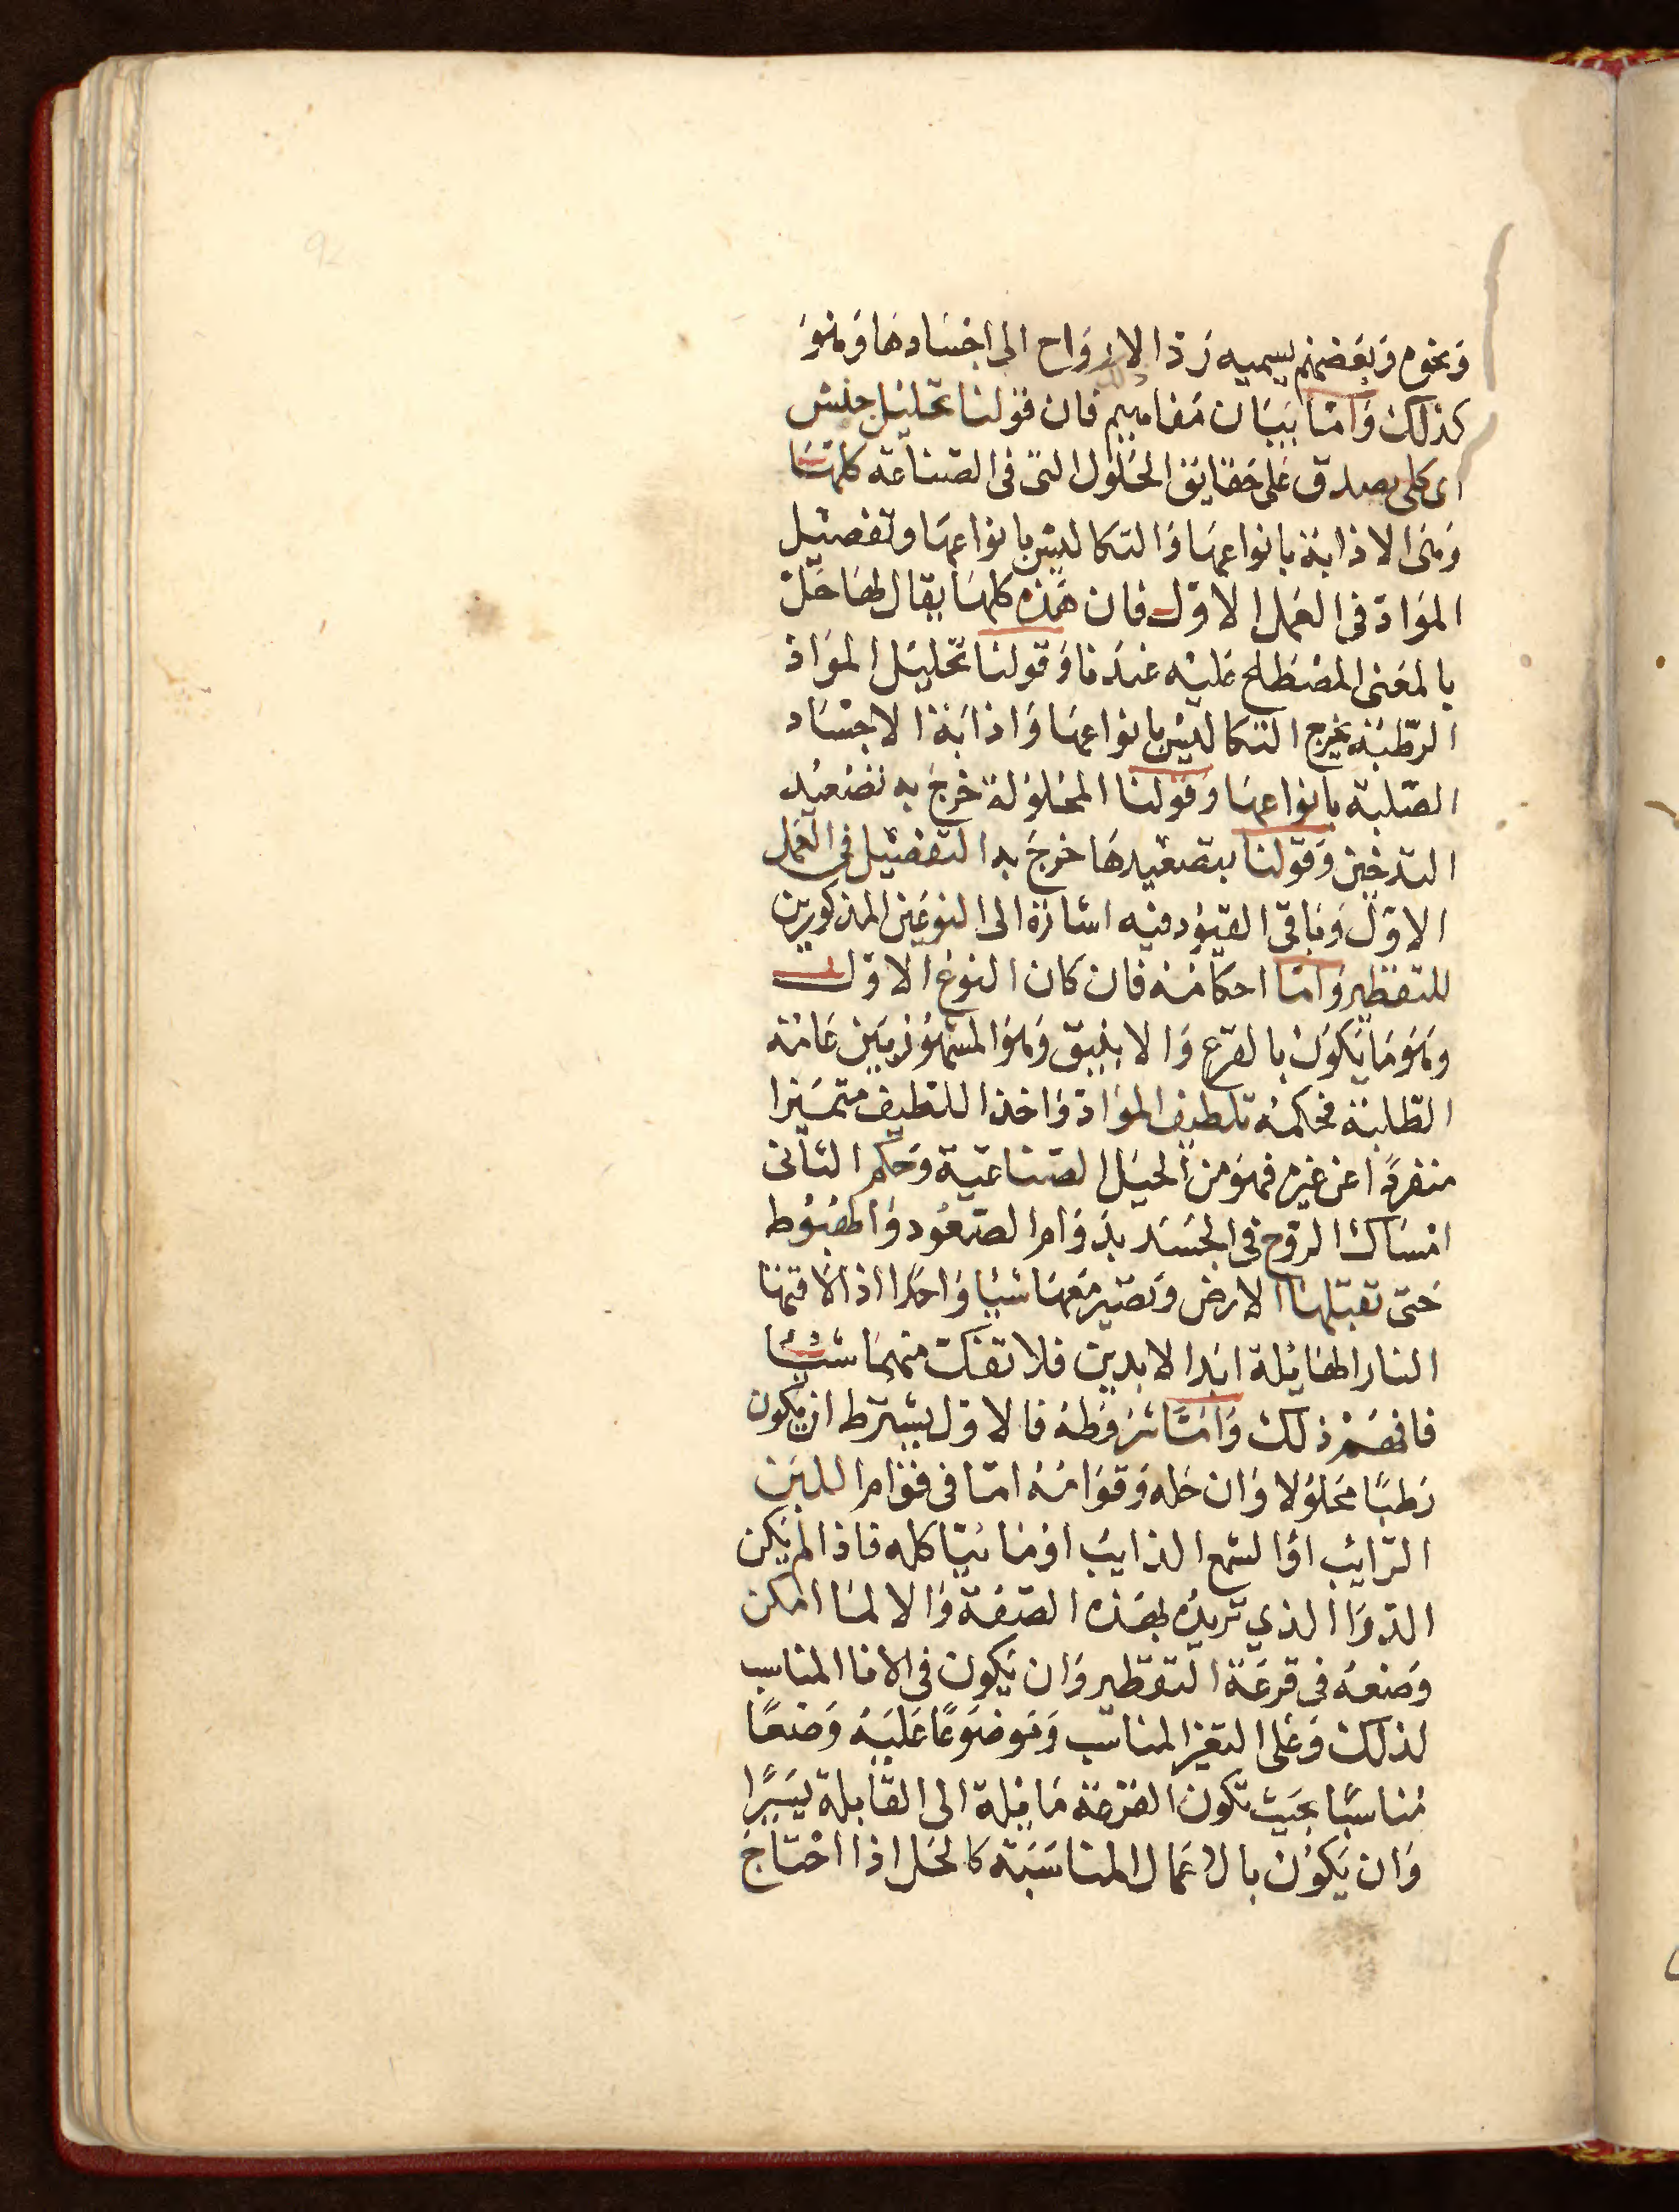 ونحوه وبعضهم يسميه رد الارواح الى اجسادها وهو
كذلك وامّا بيان مفاهيم فان قولنا تحليل جنس
اى كلى يصدق على حقايق الحلول التى فى الصناعة كلها
وهى الاذابة بانواعها والتكاليس بانواعها وتفصيل
المواد فى العمل الاوّل فان هذه كلها يقال لها حل
بالمعنى المصطلح عليه عندنا وقولنا تحليل المواد
الرطبة يخرج التكاليس بانواعها واذابة الاجساد
الصّلبة بانواعها وقولنا المحلولة خرج به تصعيد
التدخين وقولنا بتصعيدها خرج به التفصيل فى العمل
الاوّل وباقى القيود فيه اشارة الى النوعين المذكورين
للتقطير وامّا احكامه فان كان النوع الاوّل
وهو ما يكون بالقرع والانبيق وهو المشهور بين عامة
الطلبة فحكمه تلطيف المواد واخذ اللطيف متميزا
منفردًا عن غيره فهو من الحيل الصناعية وحكم الثانى
امساك الروح فى الجسد بدوام الصعود والهبوط
حتى تقبلها الارض وتصير معها شيا واحدا اذا لاقتها
النار الهايلة ابدا الابدين فلا تفك منهما شيًا
فافهم ذلك وامّا شروطه فالاول يشترط ان يكون
رطبًا محلولا وان حله وقوامه امّا فى قوام اللبن
الرّايب او الشمع الذايب او مائيا كله فاذا لم يكن
الدوا الذي تريده بهذه الصفة والا لما امكن
وضعه فى قرعة التقطير وان يكون فى الانا المناسب
لذلك وعلى المناسب وموضوعًا عليه وضعًا
مناسبًا بحيث تكون القرعة مايلة الى القابلة يسيرًا
وان يكون بالاعمال المناسبة كالحل اذا احتاج